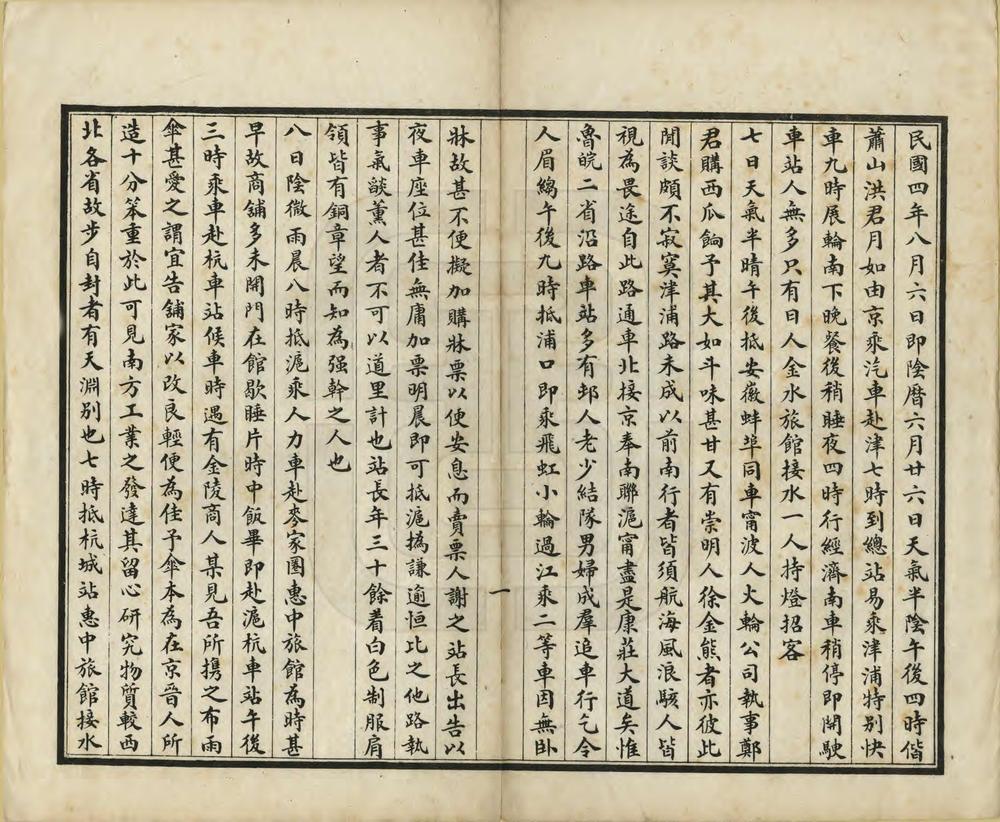 民國四年八月六日即陰曆六月廿六日天氣半陰午後四時偕
蕭山洪君月如由京乘汽車赴津七時到總站易乘津浦特別快
車九時展輪南下晚餐後稍睡夜四時行經濟南車稍停即開駛
車站人無多只有日人金水旅館接水一人持燈招客
七日天氣半晴午後抵安徽蚌埠同車甯波人火輪公司執事鄭
君購西瓜餉予其大如斗味甚甘又有崇明人徐金熊者亦彼此
閒談頗不寂寞津浦路未成以前南行者皆須航海風浪駭人皆
視為畏途自此路通車北接京奉南聯滬甯盡是康莊大道矣惟
魯皖二省沿路車站多有邨人老少結隊男婦成羣追車行乞令
人眉縐午後九時抵浦口即乘飛虹小輪過江乘二等車因無卧
一
牀故甚不便擬加購牀票以便安息而賣票人謝之站長出告以
夜車座位甚佳無庸加票明晨即可抵滬撝謙逾恒比之他路執
事氣燄薰人者不可以道里計也站長年三十餘着白色制服肩
領皆有銅章望而知為强幹之人也
八日陰微雨晨八時抵滬乘人力車赴麥家圈惠中旅館為時甚
早故商舖多未開門在館歇睡片時中飯畢即赴滬杭車站午後
三時乘車赴杭車站候車時遇有金陵商人某見吾所携之布雨
傘甚愛之謂宜告舖家以改良輕便為佳予傘本為在京晉人所
造十分笨重於此可見南方工業之發達其留心研究物質較西
北各省故步自封者有天淵別也七時抵杭城站惠中旅館接水